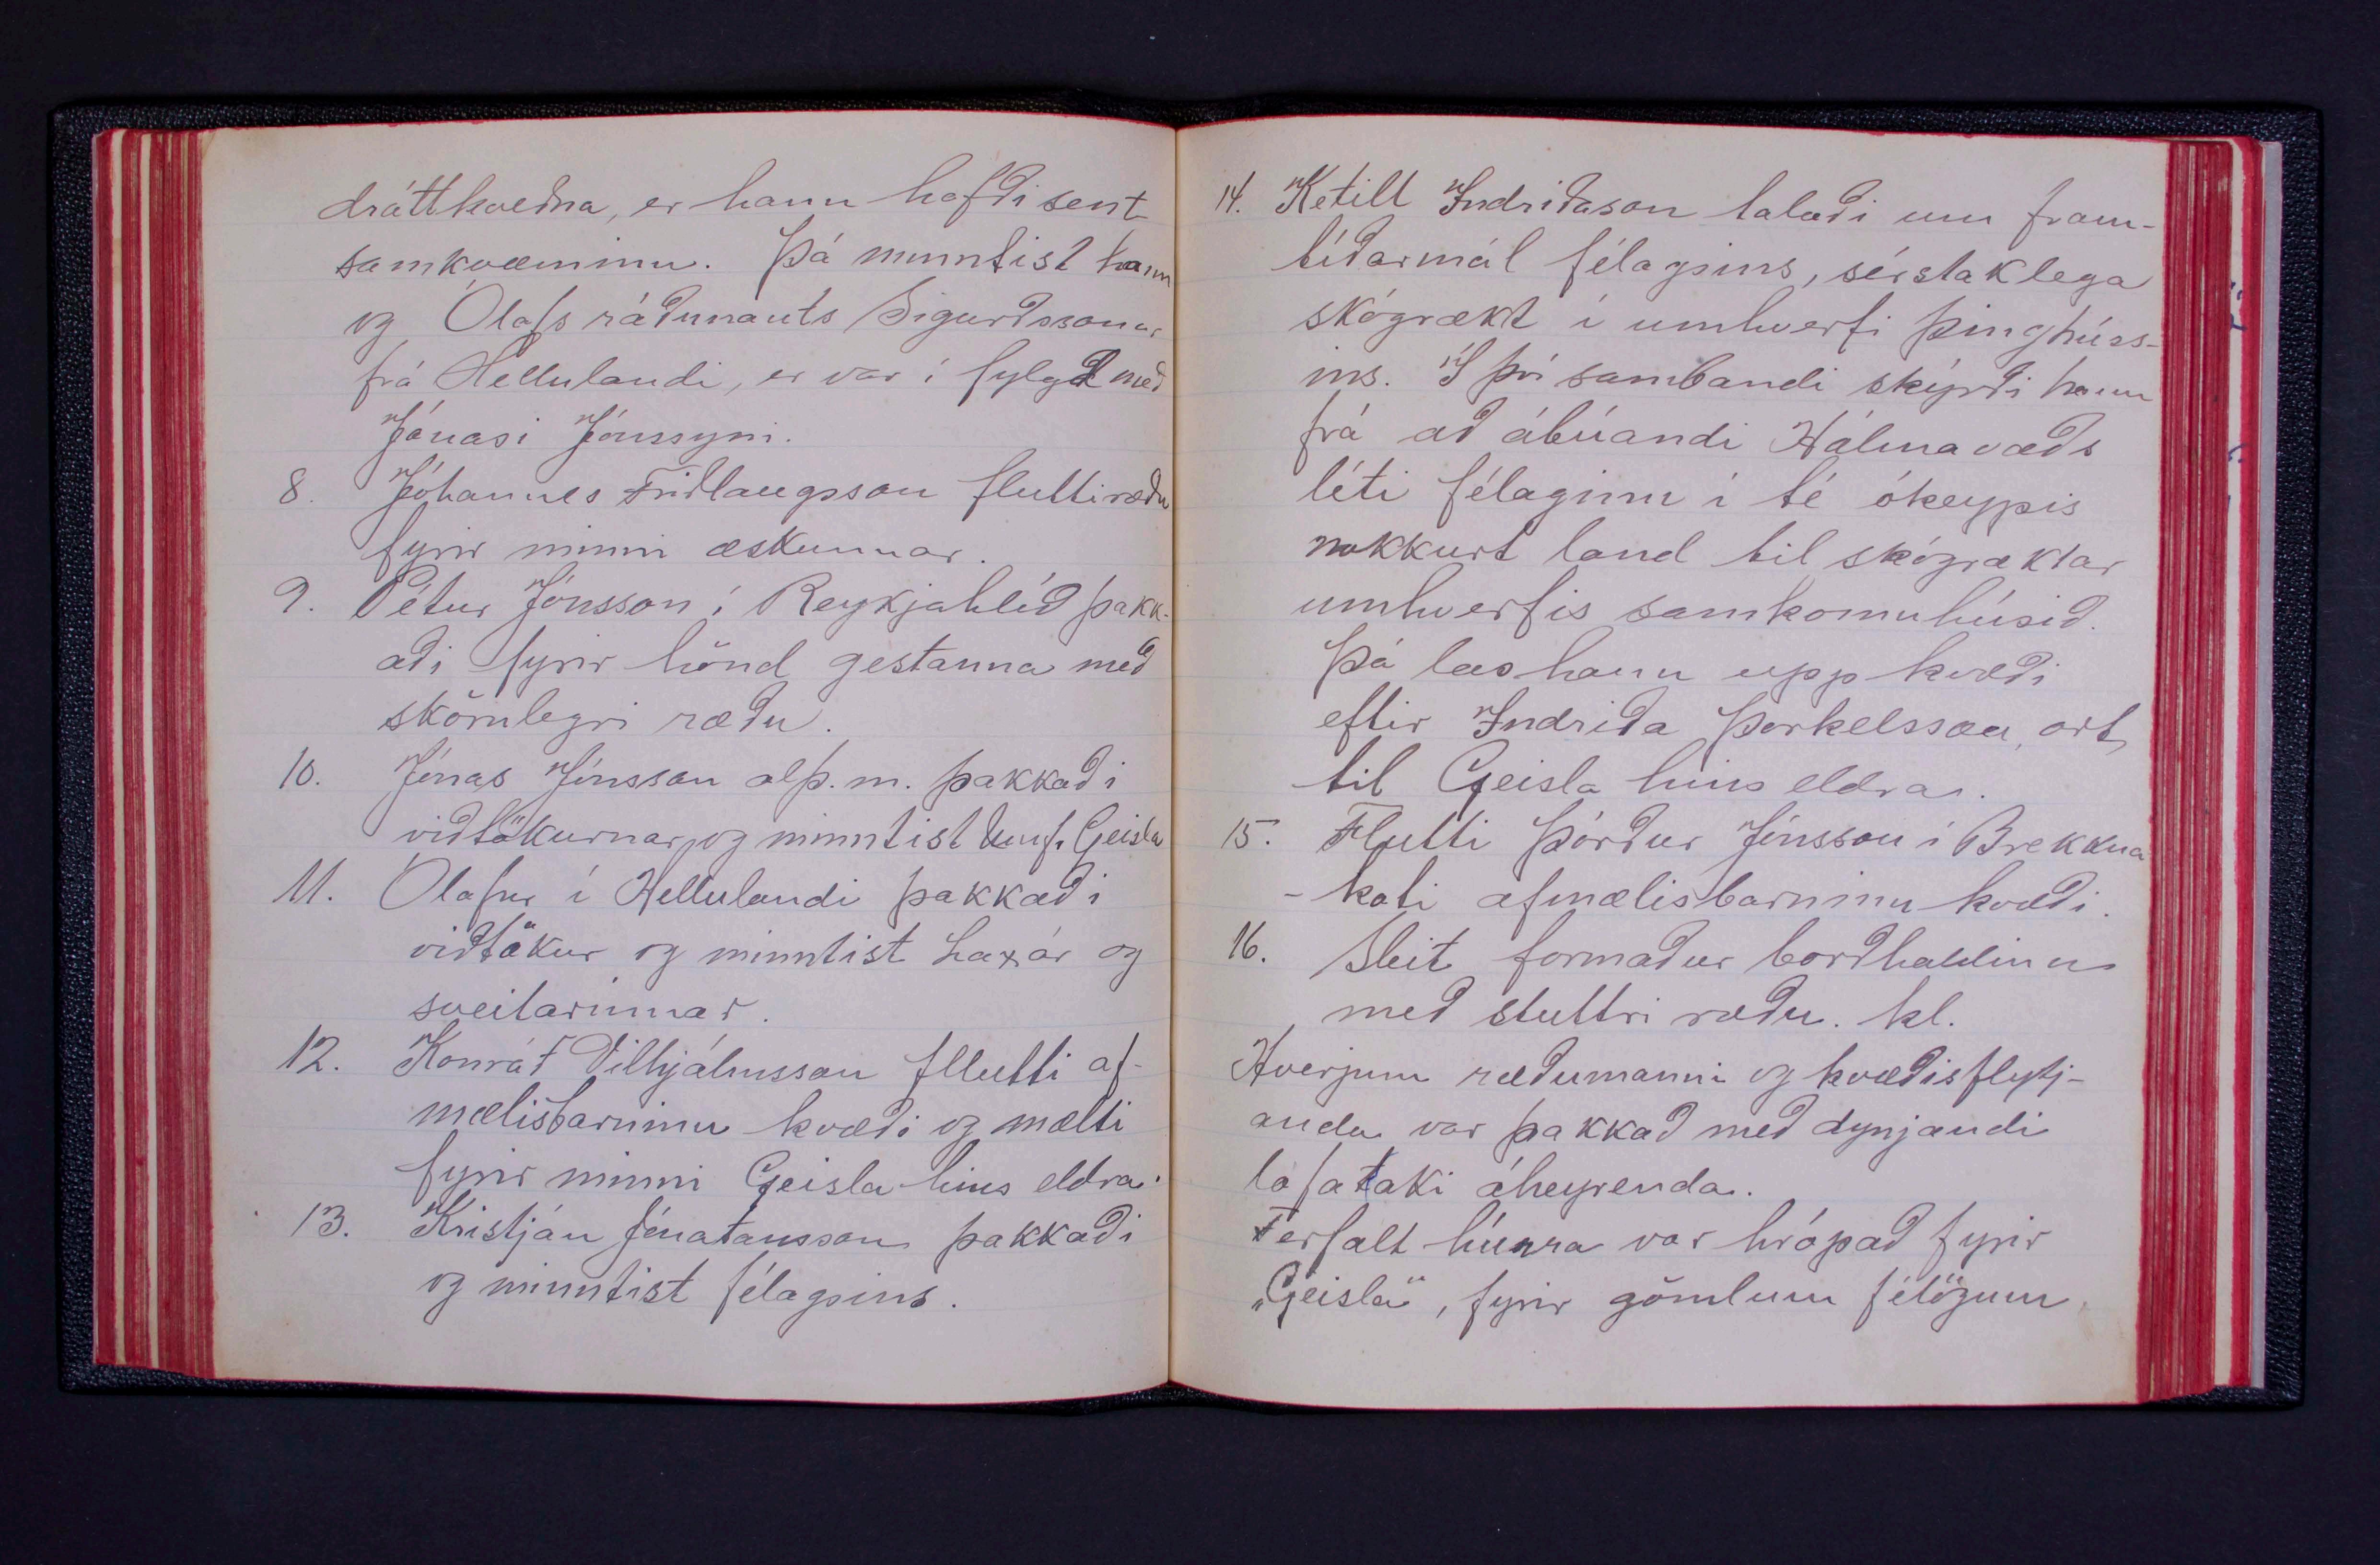 dráttkvæðna, er hann hafði sent
samkvæminu. Þá minntist hann
og Ólafs ráðunauts Sigurðssonar
frá Hellulandi, er var í fylgd með
Jónasi Jónssyni.
8. Jóhannes Friðlaugsson flutti ræðu
fyrir minni æskunnar.
9. Pétur Jónsson í Reykjahlíð þakk-
aði fyrir hönd gestanna með
skörulegri ræðu.
10. Jónas Jónsson alþ.m. þakkaði
viðtökurnar og minntist Umf. Geisla
11. Ólafur í Hellulandi þakkaði
viðtökur og minntist Laxár og
sveitarinnar.
12. Konráð Vilhjálmsson fllutti af-
mælisbarninu kvæði og mælti
fyrir minni Geisla hins eldra.
13. Kristján Jónatansson þakkaði
og minntist félagsins.
14. Ketill Indriðason talaði um fram-
tíðarmál félagsins, sérstaklega
skógrækt í umhverfi þinghúss-
ins. Í því sambandi skýrði hann
frá að ábúandi Hálmavaðs
léti félaginu í té ókeypis
nokkurt land til skógræktar
umhverfis samkomuhúsið.
Þá las hann upp kvæði
eftir Indriða Þorkelsson, ort
til Geisla hins eldra.
15. Flutti Þórður Jónsson í Brekkna
- koti afmælisbarninu kvæði.
16. Sleit formaður borðhaldinu
með stuttri ræðu. kl.
Hverjum ræðumanni og kvæðisflytj-
anda var þakkað með dynjandi
lófataki áheyrenda.
Ferfalt húrra var hrópað fyrir
„Geisla", fyrir gömlum félögum